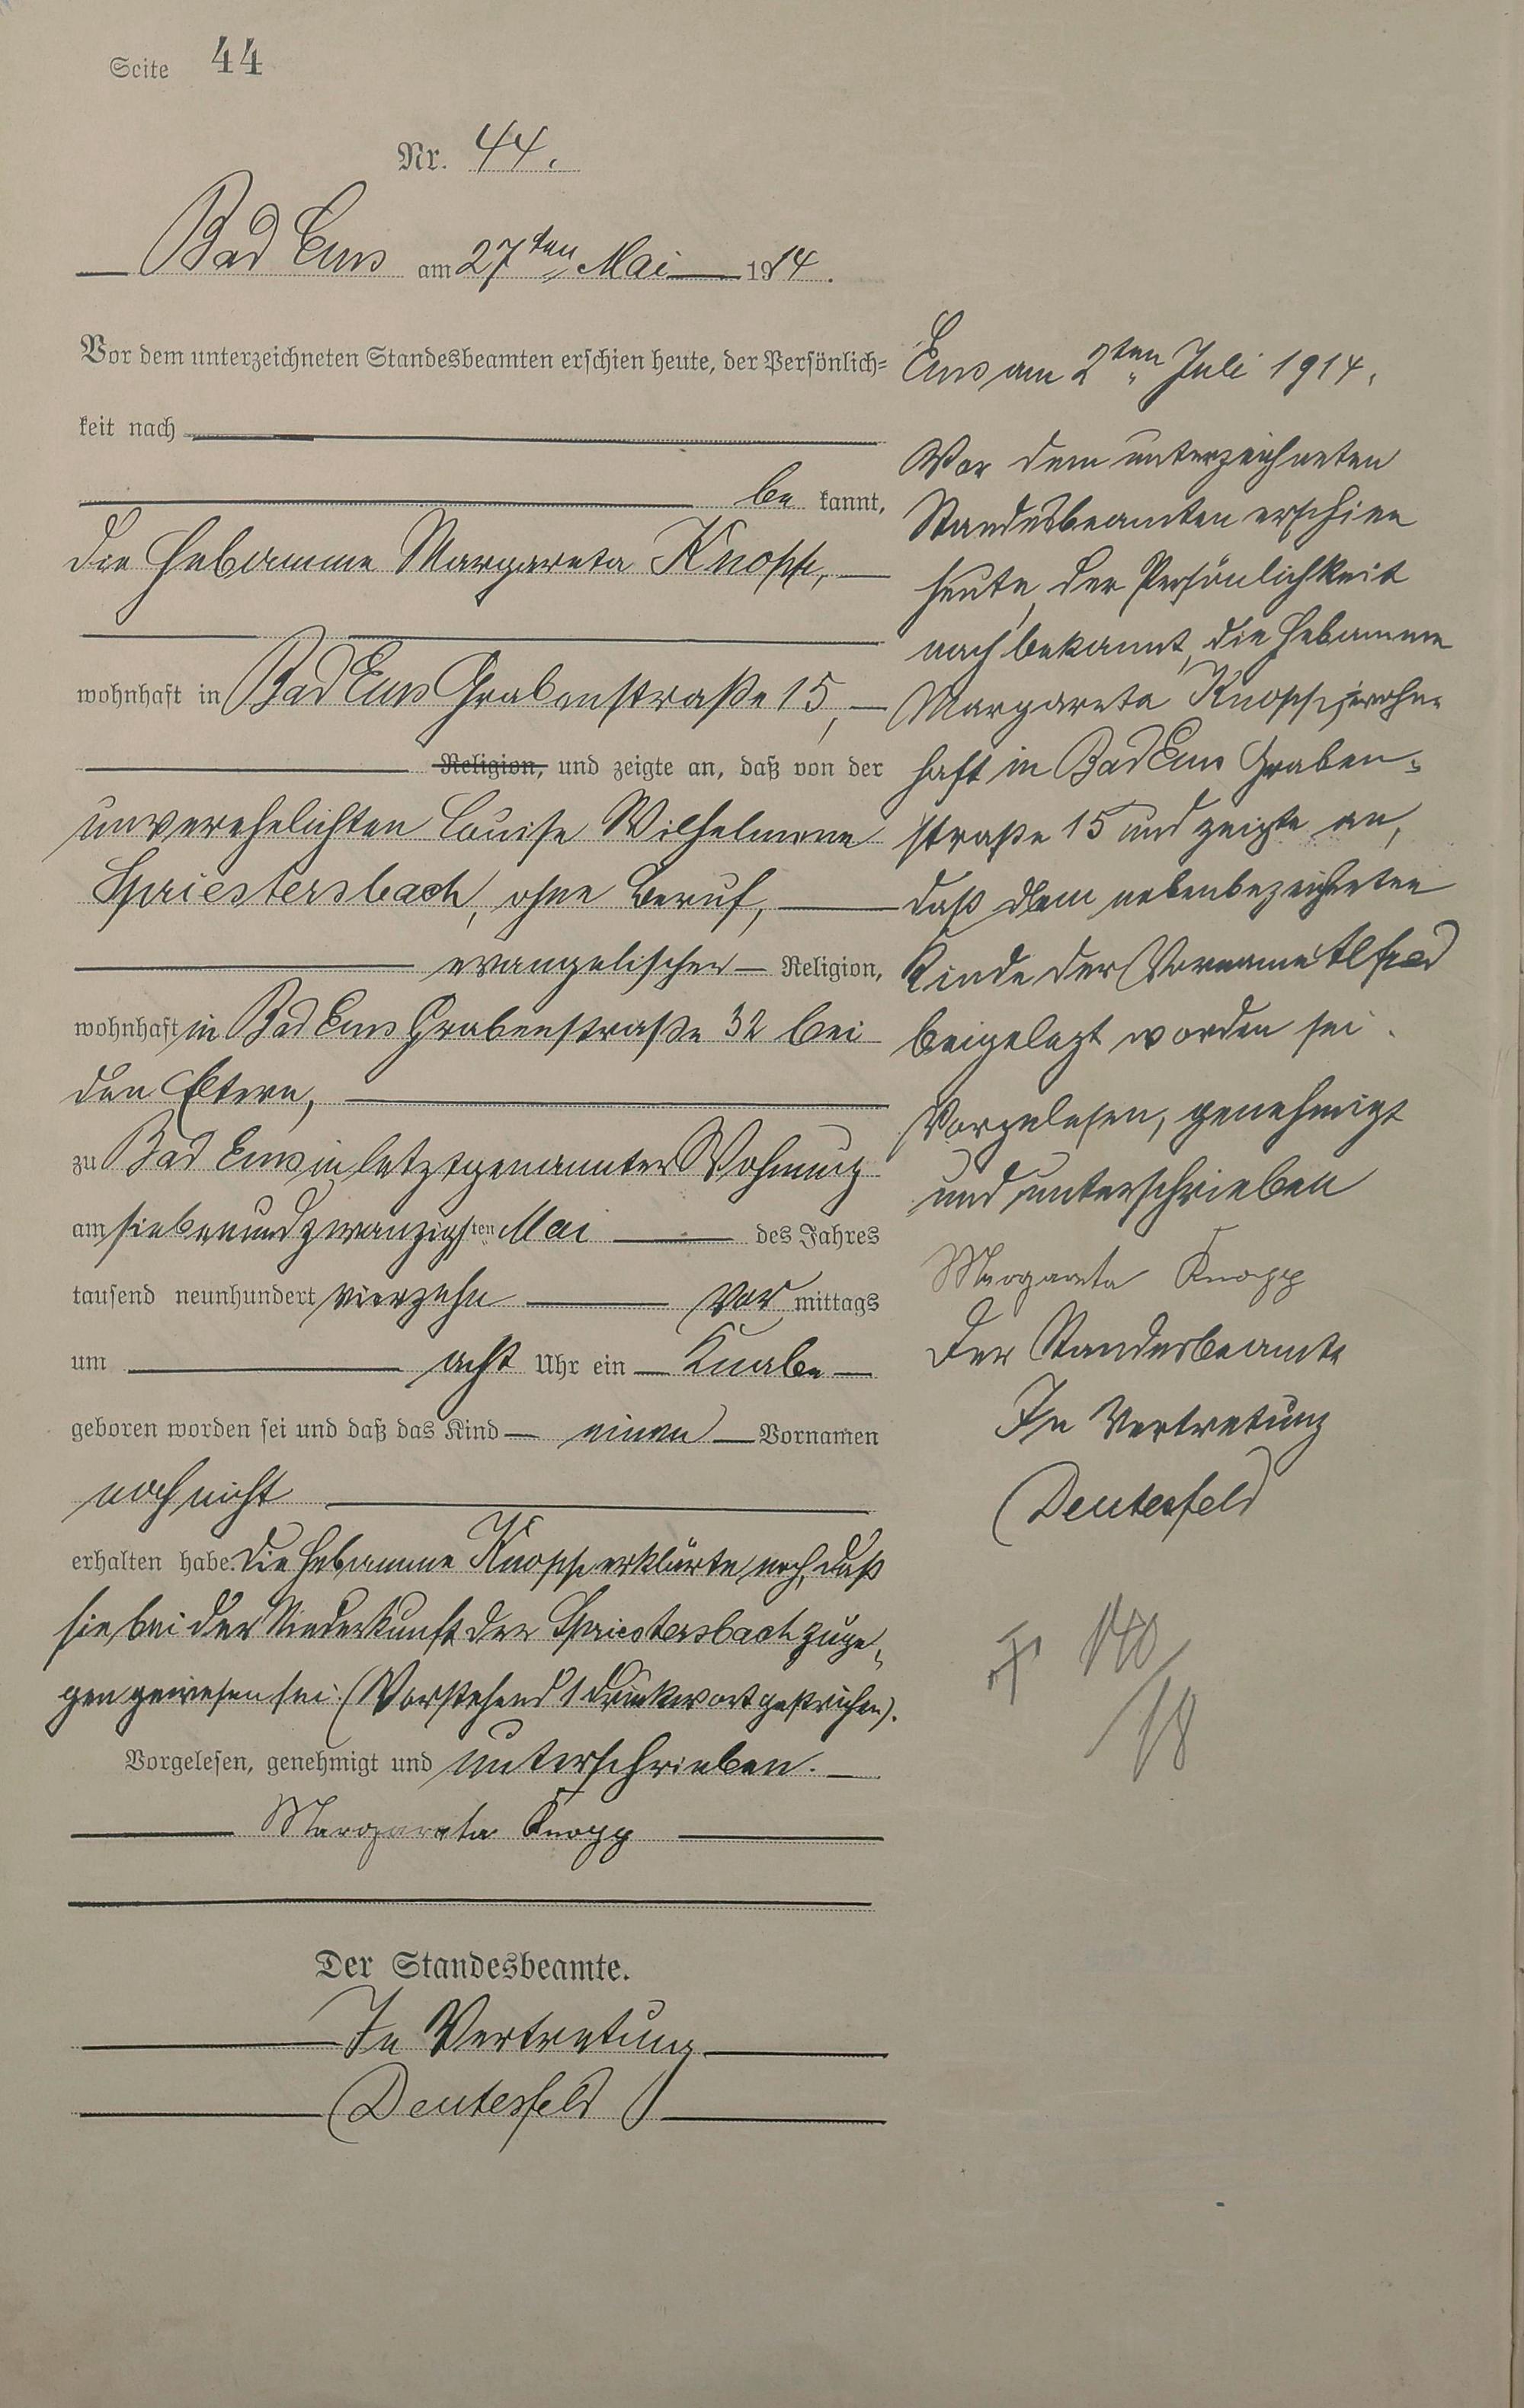 Seite 44
Nr. 44.
Bad Ems am 27ten Mai 1914.
Vor dem unterzeichneten Standesbeamten erschien heute, der Persönlich=
keit nach
be kannt,
die Hebamme Margareta Knopp,
wohnhaft in Bad Ems Grabenstraße 15,
Religion, und zeigte an, daß von der
unverehelichten Louise Wilhelmine
Spriestersbach, ohne Beruf,
evangelischer Religion,
wohnhaft in Bad Ems Grabenstraße 32 bei
den Eltern,
zu Bad Ems in letztgenannter Wohnung
am siebenundzwanzigsten Mai des Jahres
tausend neunhundert vierzehn Vor mittags
um acht Uhr ein Knabe
geboren worden sei und daß das Kind einen Vornamen
noch nicht
erhalten habe. Die Hebamme Knopp erklärte noch, daß
sie bei der Niederkunft der Spriestersbach zuge=
gen gewesen sei. (Vorstehend 1 Druckwort gestrichen).
Vorgelesen, genehmigt und unterschrieben.
Margareta Knopp
Der Standesbeamte.
In Vertretung
Deutesfeld
Ems am 2ten Juli 1914.
Vor dem unterzeichneten
Standesbeamten erschien
heute, der Persönlichkeit
nach bekannt, die Hebamme
Margareta Knopp, wohn=
haft in Bad Ems Graben=
straße 15 und zeigte an,
daß dem nebenbezeichneten
Kinde der Vorname Alfred
beigelegt worden sei.
Vorgelesen, genehmigt
und unterschrieben
Margareta Knopp
Der Standesbeamte
In Vertretung
Deutesfeld
140
/18